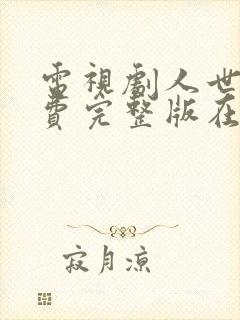 電視劇人世
費完整版在
寂月涼